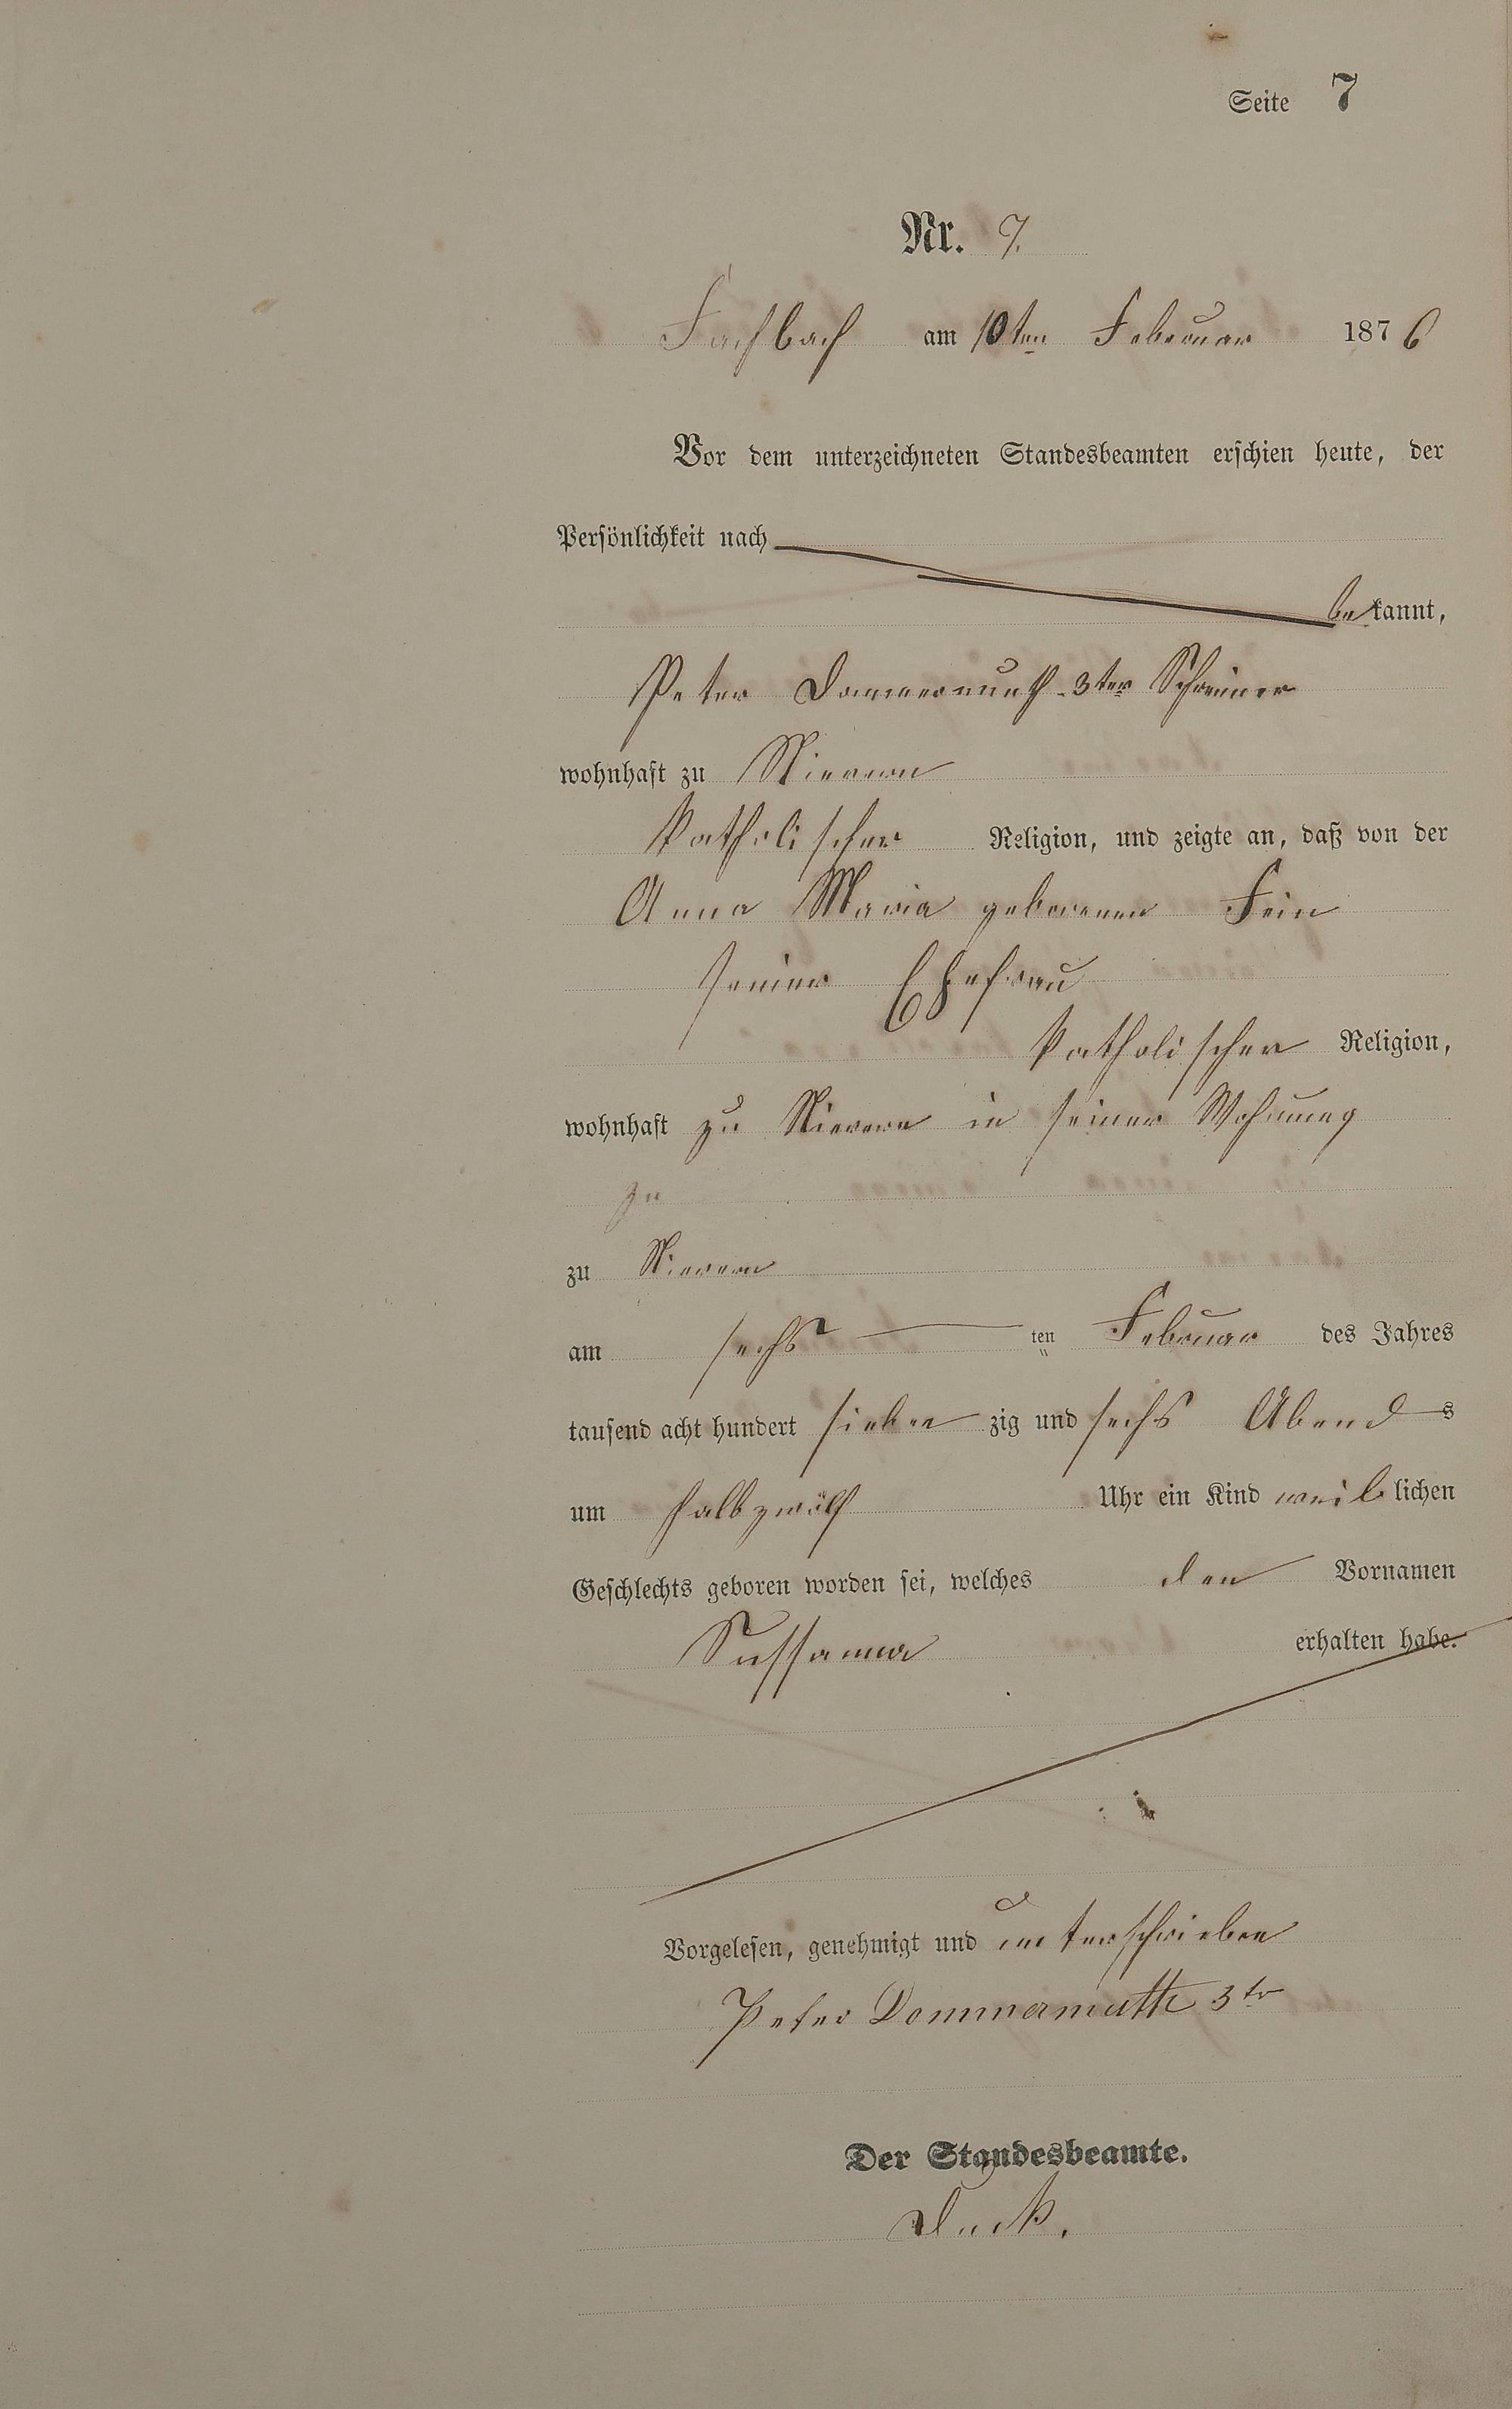 Seite 7
Nr. 7.
Fachbach am 10ten Februar 1876
Vor dem unterzeichneten Standesbeamten erschien heute, der
Persönlichkeit nach
bekannt,
Peter Dommermuth 3ter Schreiner
wohnhaft zu Nievern
katholischer Religion, und zeigte an, daß von der
Anna Maria geborenen Fein
seiner Ehefrau
katholischer Religion,
wohnhaft zu Nievern in seiner Wohnung
zu
zu Nievern
am sechsten Februar des Jahres
tausend acht hundert siebenzig und sechs Abends
um halb zwölf Uhr ein Kind weiblichen
Geschlechts geboren worden sei, welches den Vornamen
Sussanna erhalten habe.
Vorgelesen, genehmigt und unterschrieben
Peter Dommermuth 3tr
Der Standesbeamte.